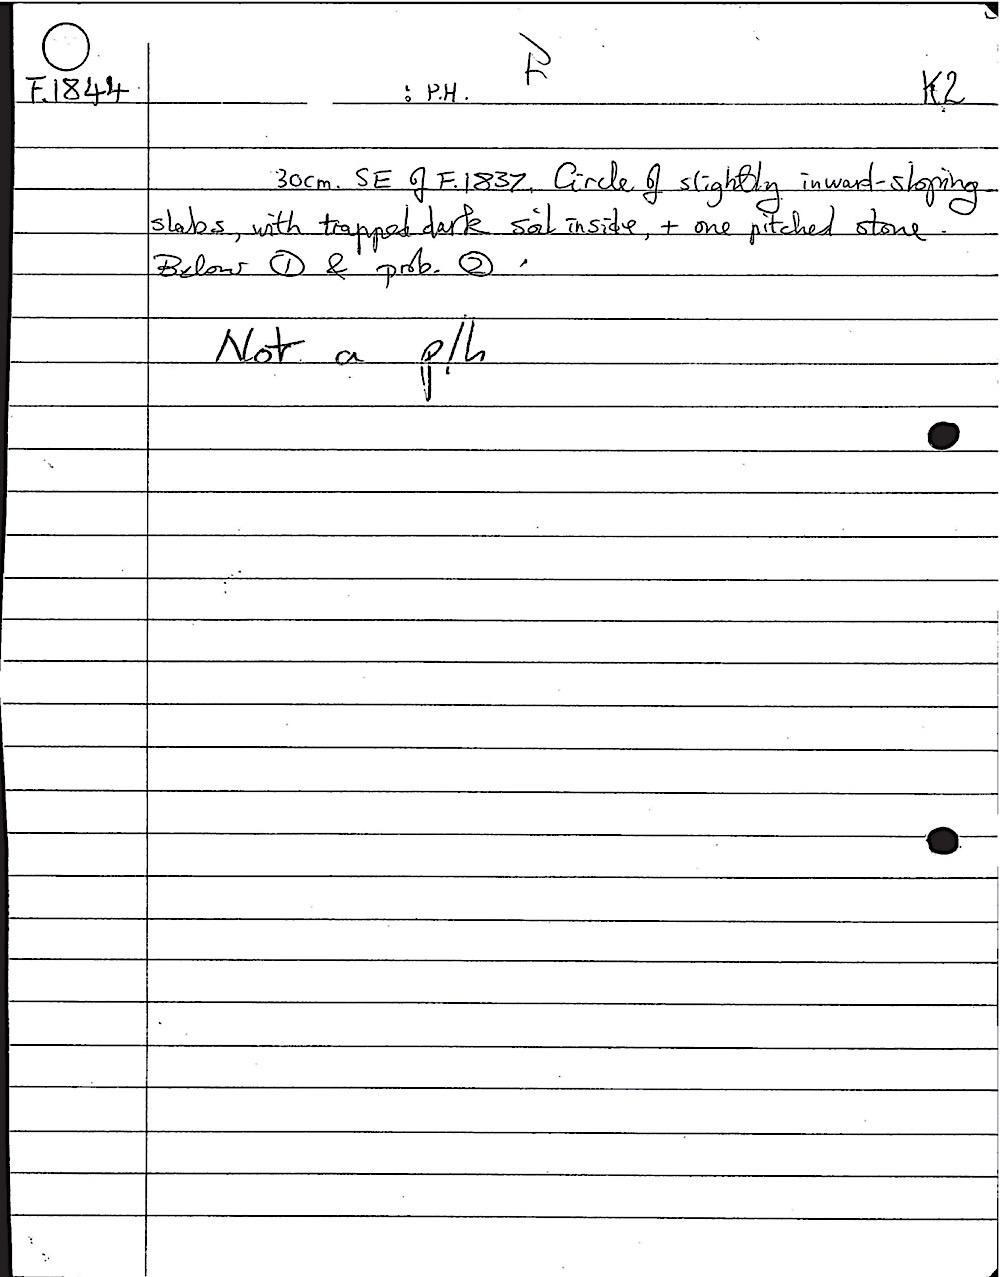 F.1844 : P.H. K2
30cm. SE of F.1837. Circle of slightly inward-sloping
slabs, with trapped dark soil inside, + one pitched stone.
Below ① & prob. ②.
Not a p/h